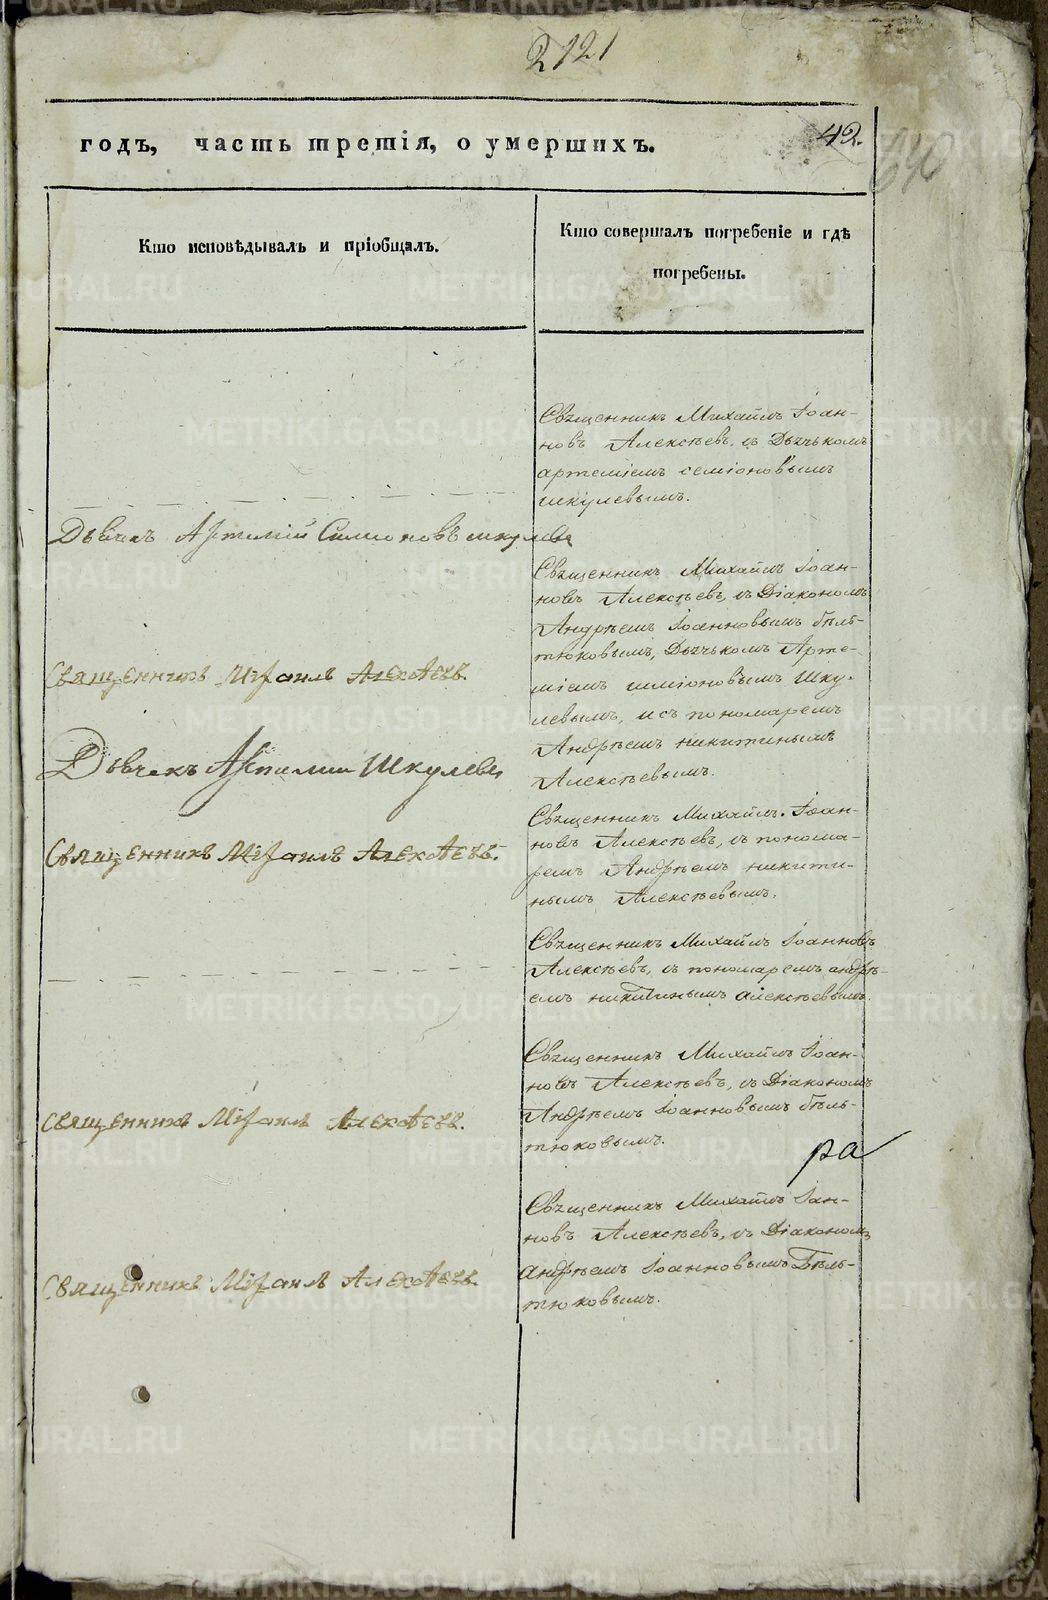 2121
годъ, часть третія, о умершихъ.
42.
640
Кто исповѣдывалъ и пріобщалъ.
Кто совершалъ погребеніе и гдѣ
погребены.
Священникъ Михаилъ Іоан-
новъ Алексѣевъ, съ Дьячькомъ
артеміемъ семіоновымъ
шкулевымъ.
Дьячекъ Артемій Симионовъ шкулевъ
Священникъ Михаилъ Іоан-
новъ Алексѣевъ, съ Діакономъ
Андрѣемъ Іоанновымъ бѣль-
тюковымъ, Дьячькомъ Арте-
міемъ симіоновымъ Шку-
левымъ, и съ пономаремъ
Андрѣемъ никитинымъ
Алексѣевымъ.
Священникъ Мїхаилъ Алеѯѣевъ.
Дьячекъ Артемии Шкулевъ
Священникъ Михаилъ Іоан-
новъ Алексѣевъ, съ понома-
ремъ Андрѣемъ никити-
нымъ Алексѣевымъ.
Священникъ Мїхаилъ Алеѯѣевъ.
Священникъ Михаилъ Іоанновъ
Алексѣевъ, съ пономаремъ андрѣ-
емъ никитинымъ алексѣевымъ.
Священникъ Михаилъ Іоан-
новъ Алексѣевъ, съ Діакономъ
Андрѣемъ Іоанновымъ бѣль-
тюковымъ.
Священникъ Мїхаилъ Алеѯѣевъ.
ра
Священникъ Михаилъ Іоан-
новъ Алексѣевъ, съ Діакономъ
андрѣемъ Іоанновымъ Бѣль-
тюковымъ.
Священникъ Мїхаилъ Алеѯѣевъ.
METRIKI.GASO-URAL.RU